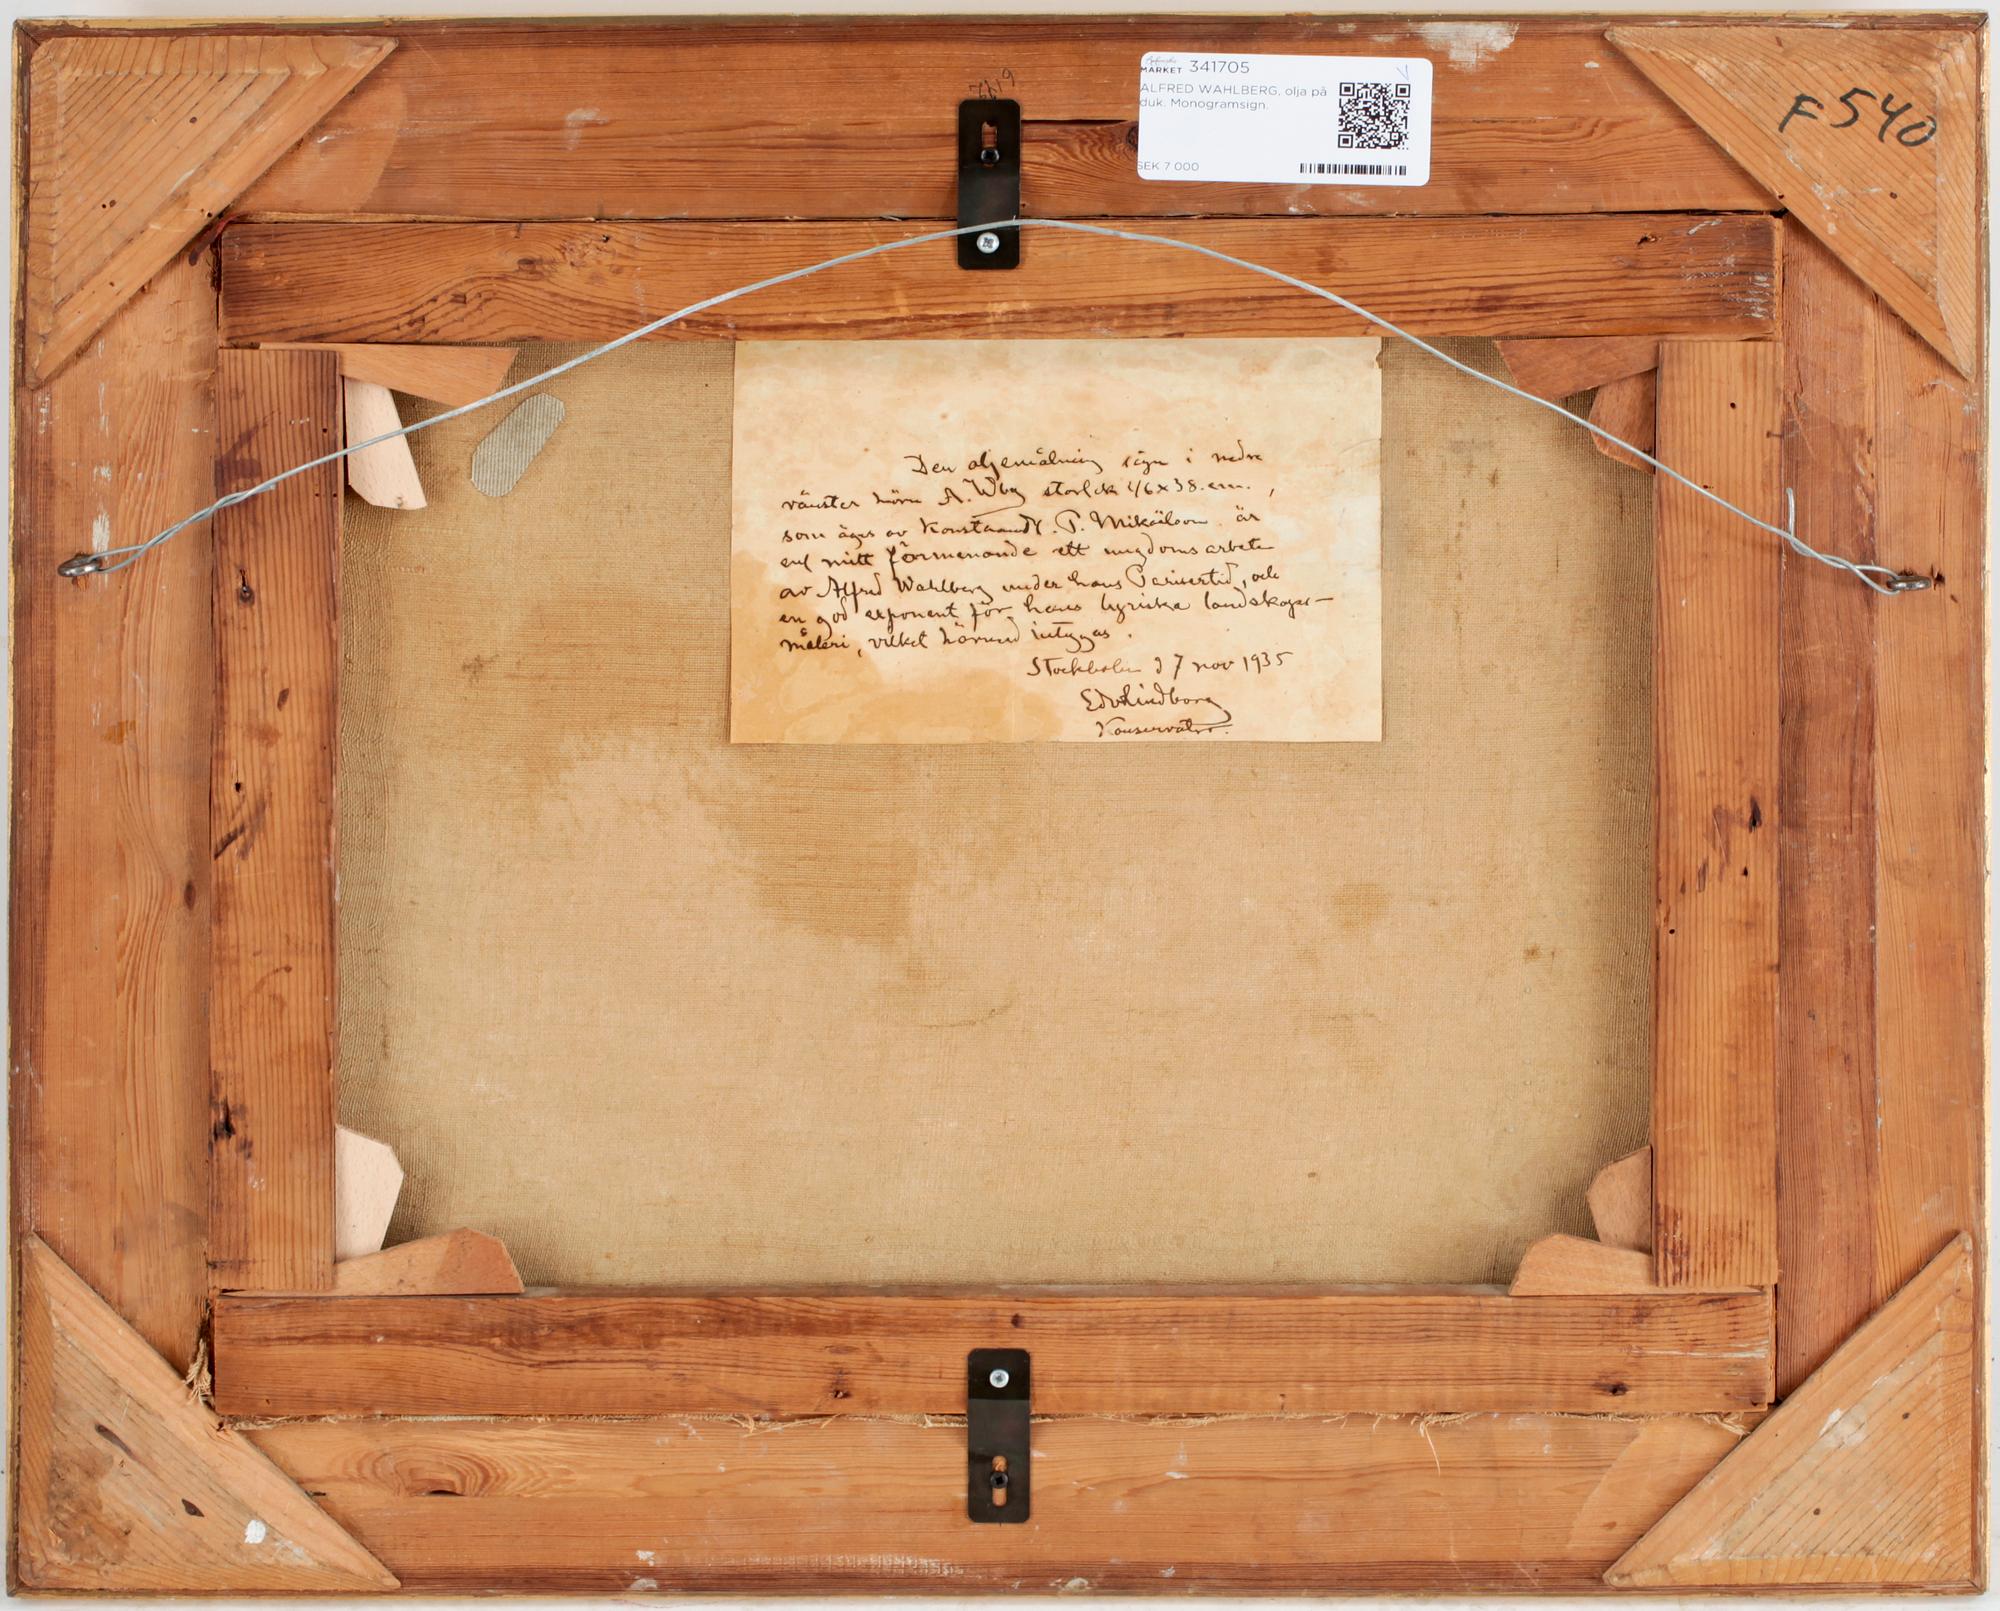 MARKET 341705
ALFRED WAHLBERG, olja på
duk. Monogramsign.
SEK 7 000
F 540
Den oljemålning sign i nedre
vänster hörn A. Wbg storlek 46x38.cm.,
som äges av Konsthandl. P. Mikäilson är
enl mitt förmenande ett ungdomsarbete
av Alfred Wahlberg under hans Parisertid, och
en god exponent för hans lyriska landskaps-
måleri, vilket härmed intygas.
Stockholm d 7 nov 1935
Edv Lindborg
Konservator.